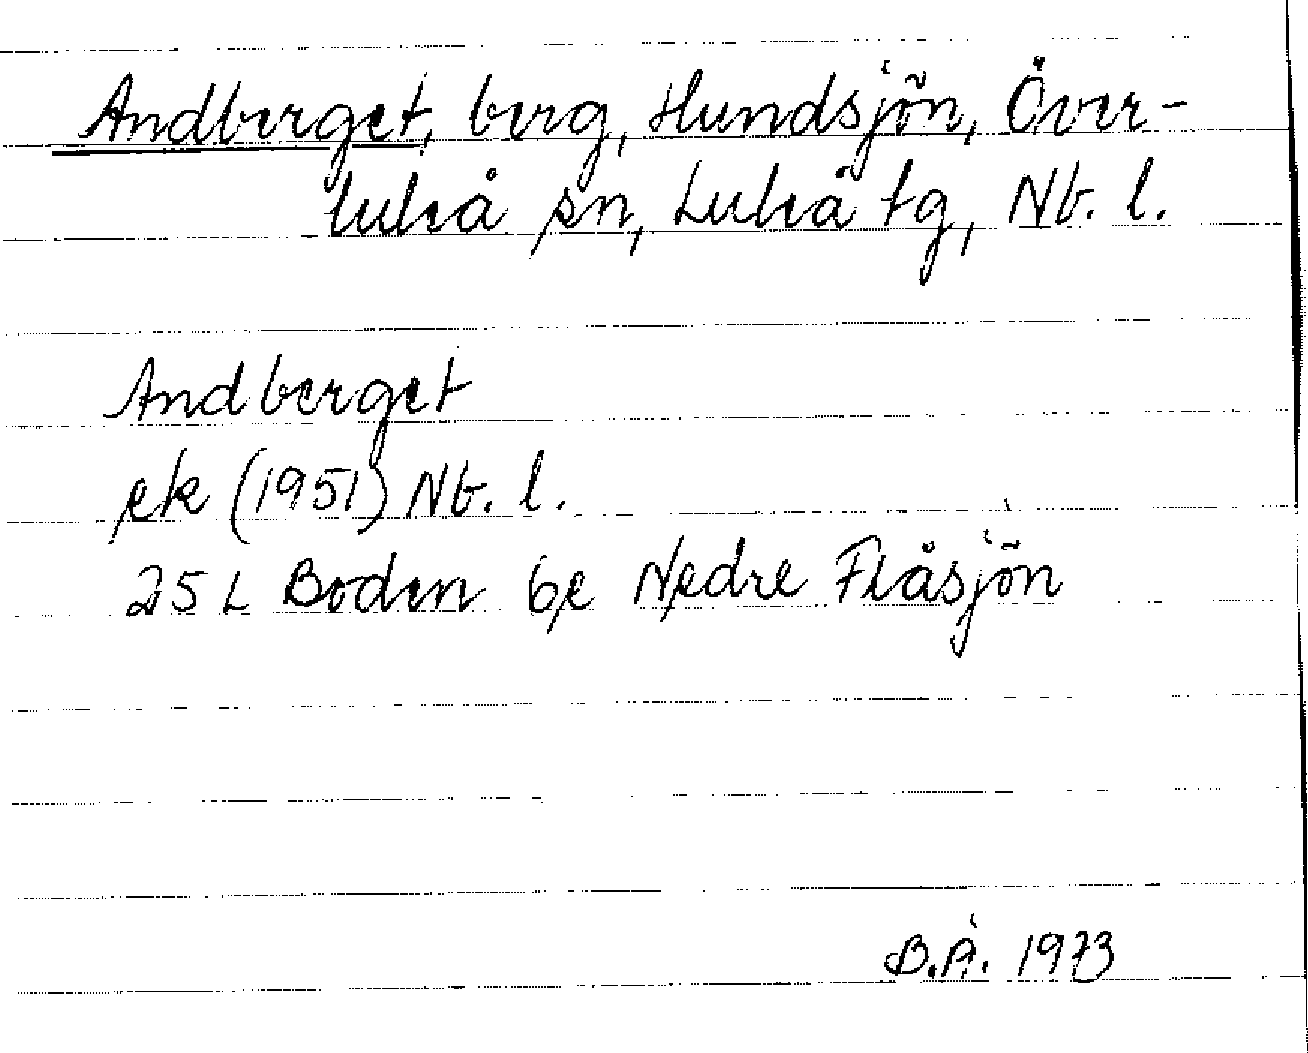 Andberget, berg, Hundsjön, Över-
luleå sn, Luleå tg, Nb. l.
Andberget
ek (1951) Nb. l.
25 L Boden 6e Nedre Flåsjön
B.Å. 1973